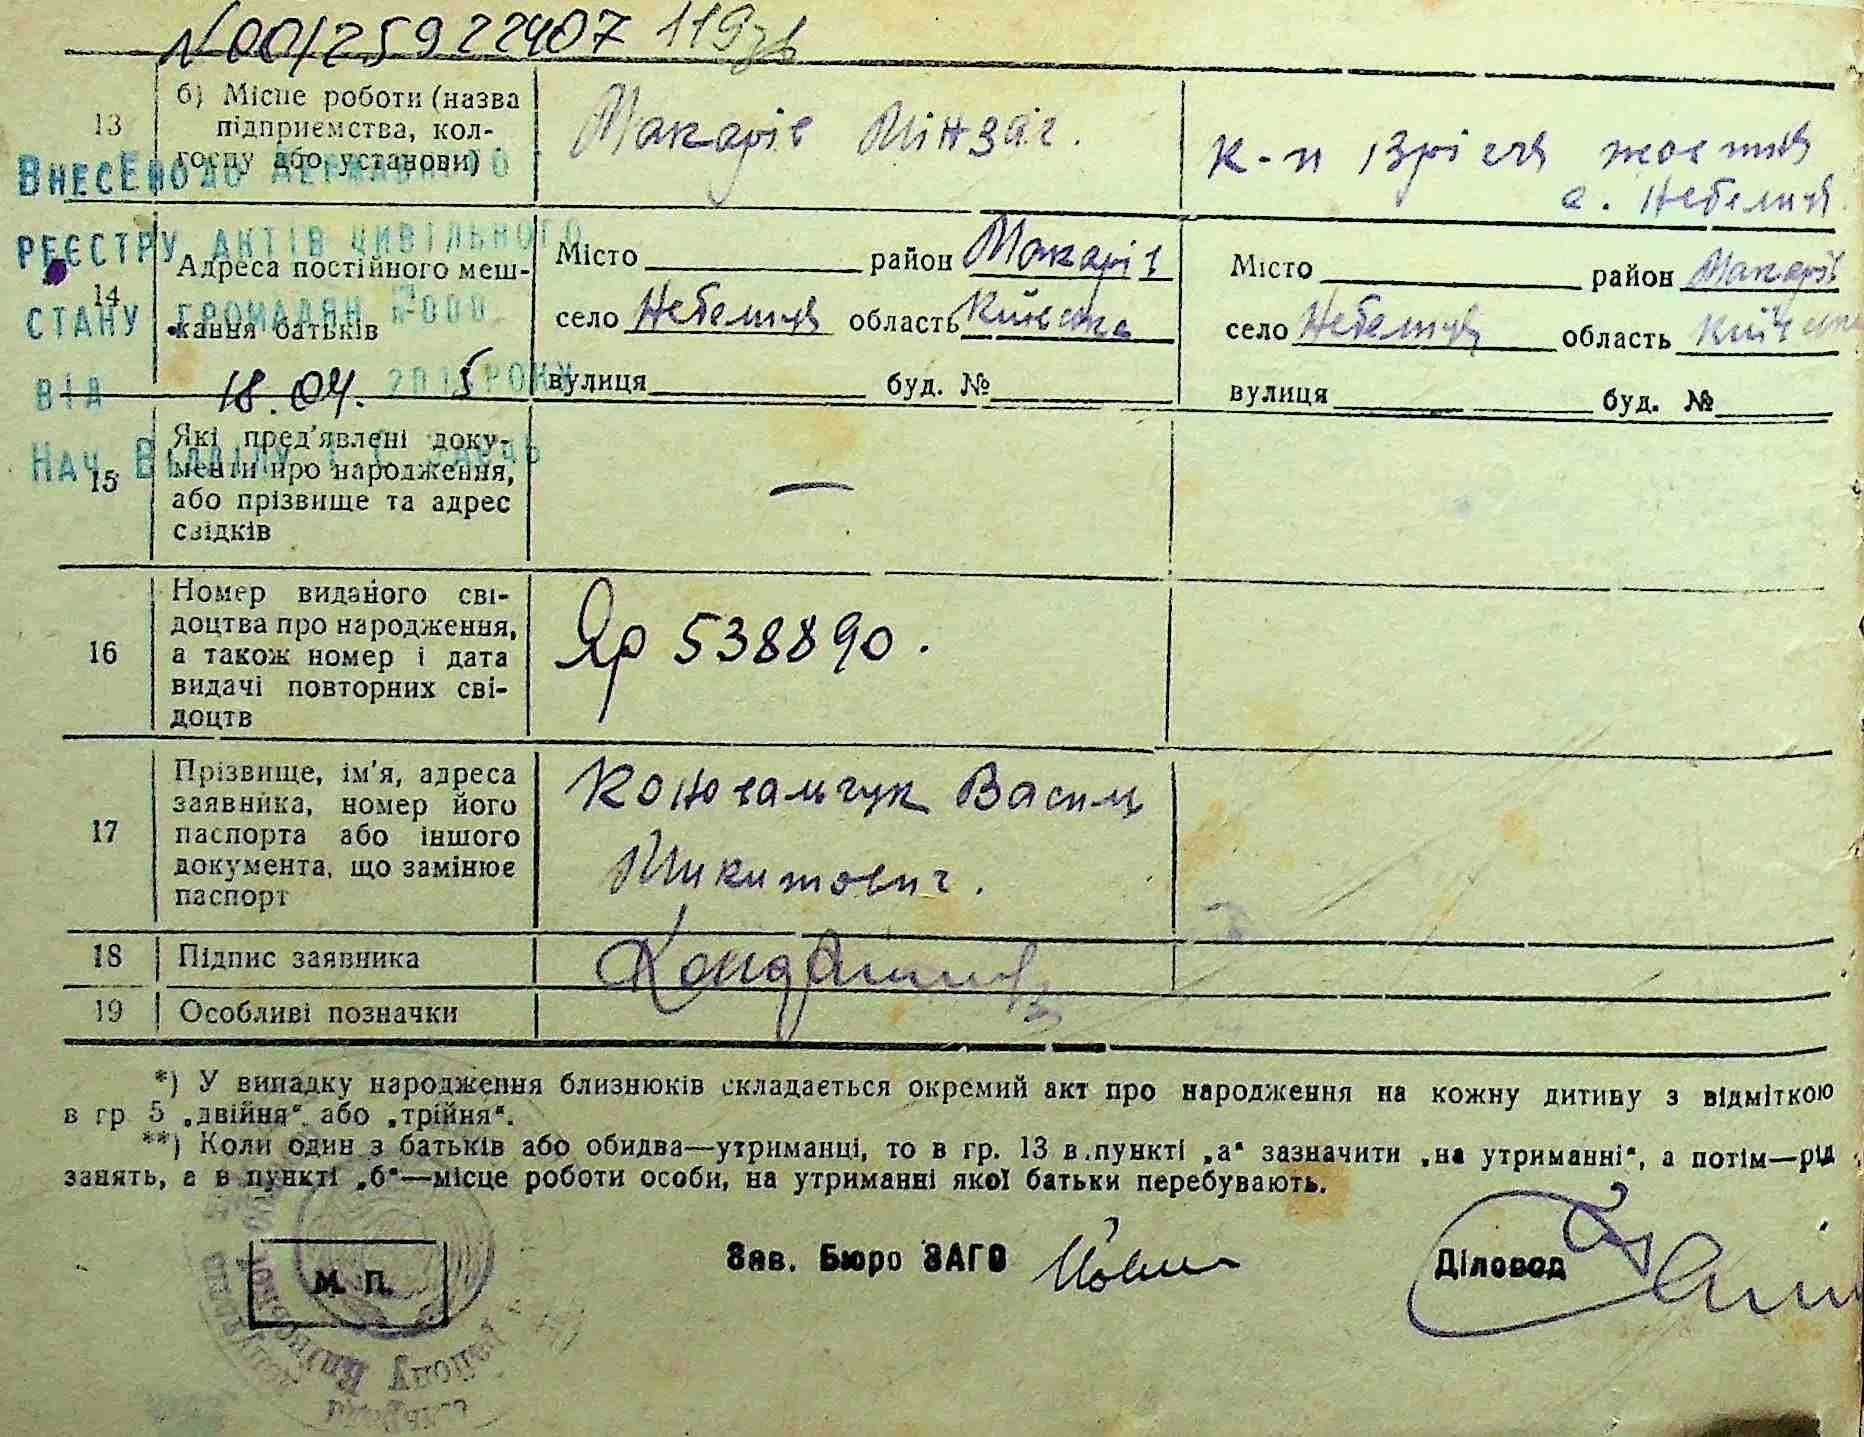 N00125922407 119зв
13 б) Місце роботи (назва
підприємства, кол-
госпу або установи)
Макарів Мінзаг.
с. Небелиця
ВНЕСЕНО ДО ДЕРЖАВНОГО
РЕЄСТРУ АКТІВ ЦИВІЛЬНОГО
СТАНУ ГРОМАДЯН
ВІД 18.04. 2015 РОКУ
НАЧ. ВІДДІЛУ
14 Адреса постійного меш-
кання батьків
Місто район Макарів
село Небелиця область Київська
вулиця буд. №
Місто район Макарів
село Небелиця область Київська
вулиця буд. №
15 Які пред'явлені доку-
менти про народження,
або прізвище та адрес
свідків
—
16 Номер виданого сві-
доцтва про народження,
а також номер і дата
видачі повторних сві-
доцтв
Яр 538890.
17 Прізвище, ім'я, адреса
заявника, номер його
паспорта або іншого
документа, що замінює
паспорт
Коновальчук Василь
Микитович.
18 Підпис заявника
19 Особливі позначки
*) У випадку народження близнюків складається окремий акт про народження на кожну дитину з відміткою
в гр 5 „двійня“ або „трійня“.
**) Коли один з батьків або обидва—утриманці, то в гр. 13 в пункті „а“ зазначити „на утриманні“, а потім—рід
занять, а в пункті „б“—місце роботи особи, на утриманні якої батьки перебувають.
М. П.
Зав. Бюро ЗАГС
Діловод